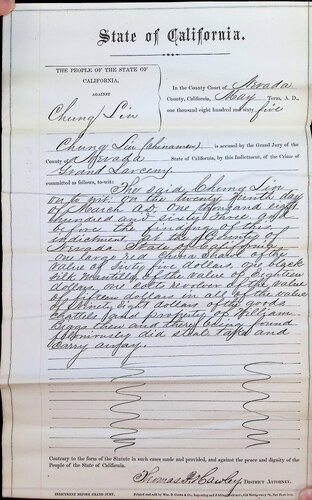 State of California.
THE PEOPLE OF THE STATE OF
CALIFORNIA,
AGAINST
Chung Lin
In the County Court of Nevada
County, California, May Term, A. D.,
one thousand eight hundred and sixty five
Chung Lin (chinaman) is accused by the Grand Jury of the
County of Nevada State of California, by this Indictment, of the Crime of
Grand Larceny
committed as follows, to-wit:
The said Chung Lin
on to wit: on the twenty ninth day
of March AD one thousand eight
hundred and sixty three and
before the finding of this
indictment at the County of
Nevada State of California
one large red China Shawl of the
value of sixty five dollars, one black
silk Mantel of the value of eighteen
dollars, one colts revolver of the value
of fifteen dollars in all of the value
of ninety eight dollars of the goods
chattels and property of William
Biggs then and there being found
feloniously did steal take and
carry away.
Contrary to the form of the Statute in such cases made and provided, and against the peace and dignity of the
People of the State of California.
Thomas P. Hawley DISTRICT ATTORNEY.